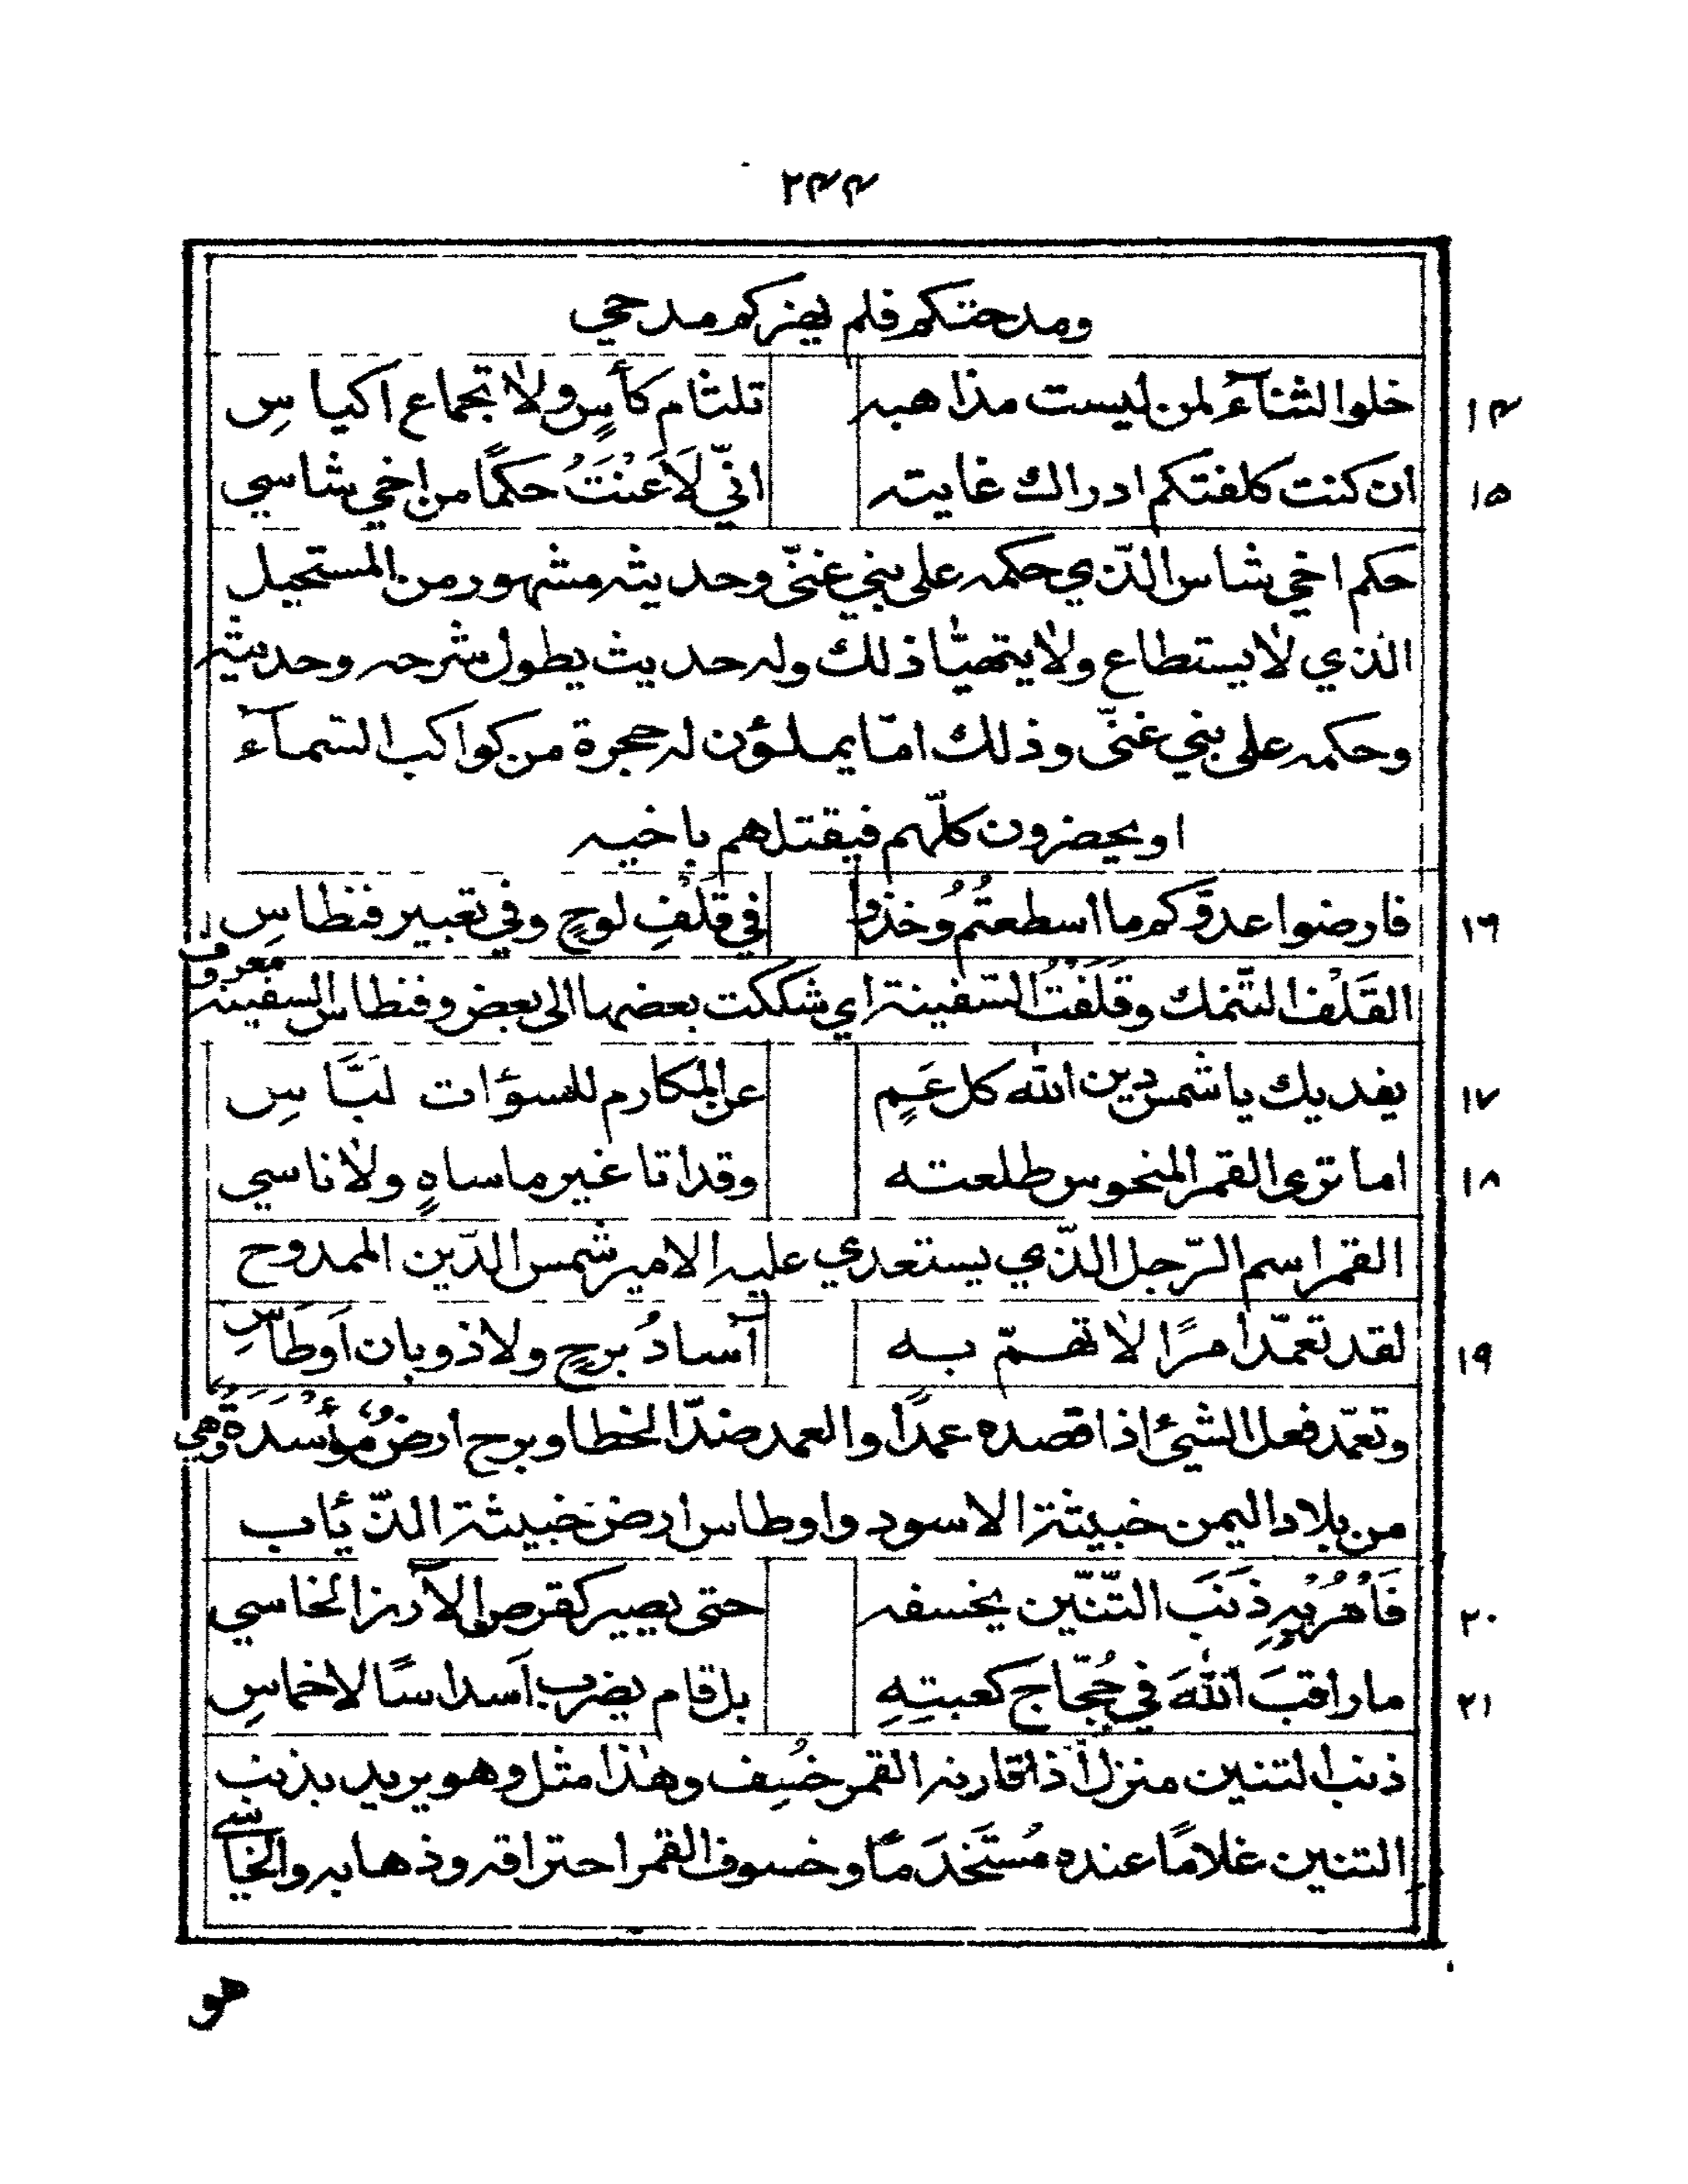 ٢٤٤
ومدحتكم فلم يضركم مدحي
١٤ خلوا الثنآءَ لمن ليست مذاهبه تلثام كأسٍ ولا تجماع اكياسِ
١٥ ان كنت كلفتكم ادراك غايته انّي لَاَعنَتُ حكمًا من اخي شاسي
حكم اخي شاس الّذي حكمه على بني غنّى وحديثه مشهور من المستحيل
الذي لا يستطاع ولا يتهيّا ذلك وله حديث يطول شرحه وحديثه
وحكمه على بني غنّى وذلك امّا يملؤن له حجرة من كواكب السّمآء
او يحضرون كلّهم فيقتلهم باخيه
١٦ فارضوا عدوّكم ما اسطعتُم وُخذوا في قَلْفِ لوحٍ وفي تعبير فنطاسِ
القَلْف السّمك وقَلَفْتُ السّفينة اي شككت بعضها الى بعض وفنطاس السفينة معروف
١٧ يفديك يا شمس دين الله كل عَمٍ عن المكارم للسوٴات لبَّاسِ
١٨ اما ترى القمر المنحوس طلعته وقد اتا غير ما ساهٍ ولا ناسي
القمر اسم الرّجل الّذي يستعدي عليه الامير شمس الدّين الممدوح
١٩ لقد تعمّد امرًا لا تهمّ به آسادُ برجٍ ولا ذوبان اَوطاسِ
وتعمّد فعل الشئ اذا قصده عمدًا والعمد ضدّ الخطا وبرج ارضٌ مُؤْسَدَةٌ وهي
من بلاد اليمن خبيثة الاسود واوطاس ارض خبيثة الذّئاب
٢٠ فَأْمُرْ بِهِ ذَنَبَ التّنّين يخسفه حتى يصير كقرص الآرز الخاسي
٢١ ما راقبَ اللهَ في حُجّاج كعبتِهِ بل قام يضرب اَسداسًا لاخماسِ
ذنب التنين منزل اذا قارنه القمر خُسِف وهٰذا مثل وهو يريد بذنب
التنين غلامًا عنده مُستَخدَمًا وخسوف القمر احتراقه وذهابه والخاسي
هو